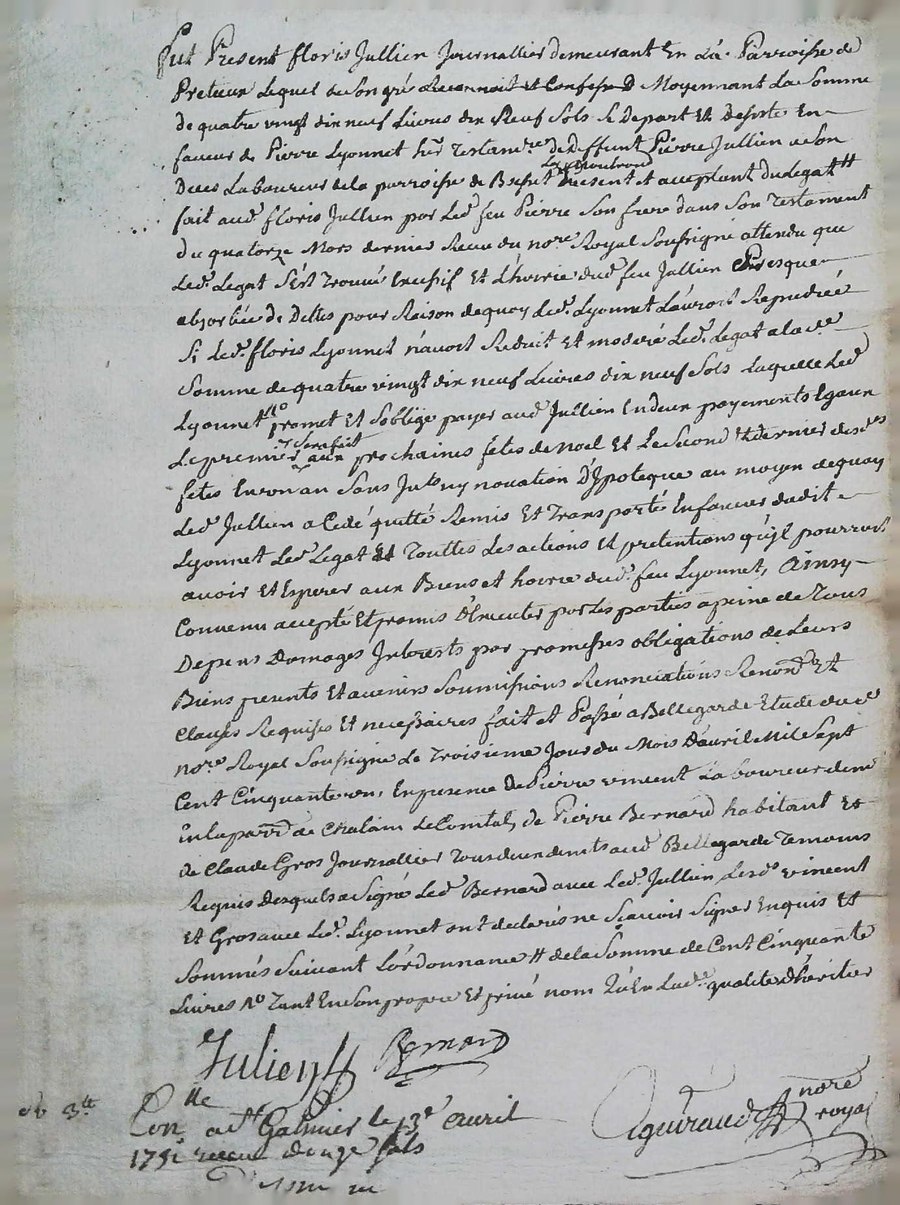 Fut Present floris Jullien Journallier demeurant En La Parroisse de
Pretieux Lequel de Son gré Reconnoit et Confesse Moyennant La Somme
de quatre vingt dix neuf Livres dix Neuf Sols Se Depart Et Desiste En
faveur de Pierre Lyonnet hér Testamre de Deffunt Pierre Jullien a Son
Deces Laboureur de la parroisse de Present Et acceptant Du Legat
fait aud floris Jullien par Led feu Pierre Son frere dans Son Testament
du quatorze Mars dernier Receu du nore Royal Soussigné attendu que
Led. Legat S'est Trouvé Excessif Et L'hoirie dud feu Jullien Presque
absorbée de Dettes pour Raison de quoy Led. Lyonnet L'auroit Repudiée
Si Led. floris Lyonnet n'avoit Reduit Et moderé Led. Legat a lade
Somme de quatre vingt dix neuf Livres dix neuf Sols Laquelle Led
Lyonnet promet Et S'oblige payer aud Jullien En deux payements Egaux
Le premier Sera fait aux prochaines fêtes de noel Et Le Second Et dernier desdes
fêtes En un an Sans novation D'Ypoteque au moyen de quoy
Led Jullien a Cedé quitté Remis Et Transporté En faveur dudit
Lyonnet Led Legat Et Touttes Les actions Et pretentions qu'il pourroit
avoir Et Esperer aux Biens et hoirie dud. feu Lyonnet, Ainsy
Convenu accepté Et promis D'Executer par Les parties a peine de Tous
Depens Domages Interests par promesses obligations de Leurs
Biens presents Et avenirs Soumissions Renonciations Renond Et
Clauses Requises Et necessaires fait et Passé a Bellegarde Etude dud
nore Royal Soussigné Le Troisieme Jour du Mois D'avril Mil Sept
Cent Cinquante un, En presence de Pierre vincent Laboureur demt
En la parr de Chalain Le Comtal, de Pierre Bernard habitant Et
de Claude Gros Journallier aud Bellegarde Temoins
Requis Desquels a Signé Led Bernard avec Led. Jullien Lesd vincent
Et Gros avec Led. Lyonnet ont declarés ne Scavoir Signer Enquis Et
Sommés Suivant L'ordonnance # de la Somme de Cent Cinquante
Livres No Tant En Son propre Et privé nom Qu'En Lade qualité D'héritier
Julien Bernard
Aguiraud nore royal
Con lle a st Galmier le 13e avril
1751 receu douze sols